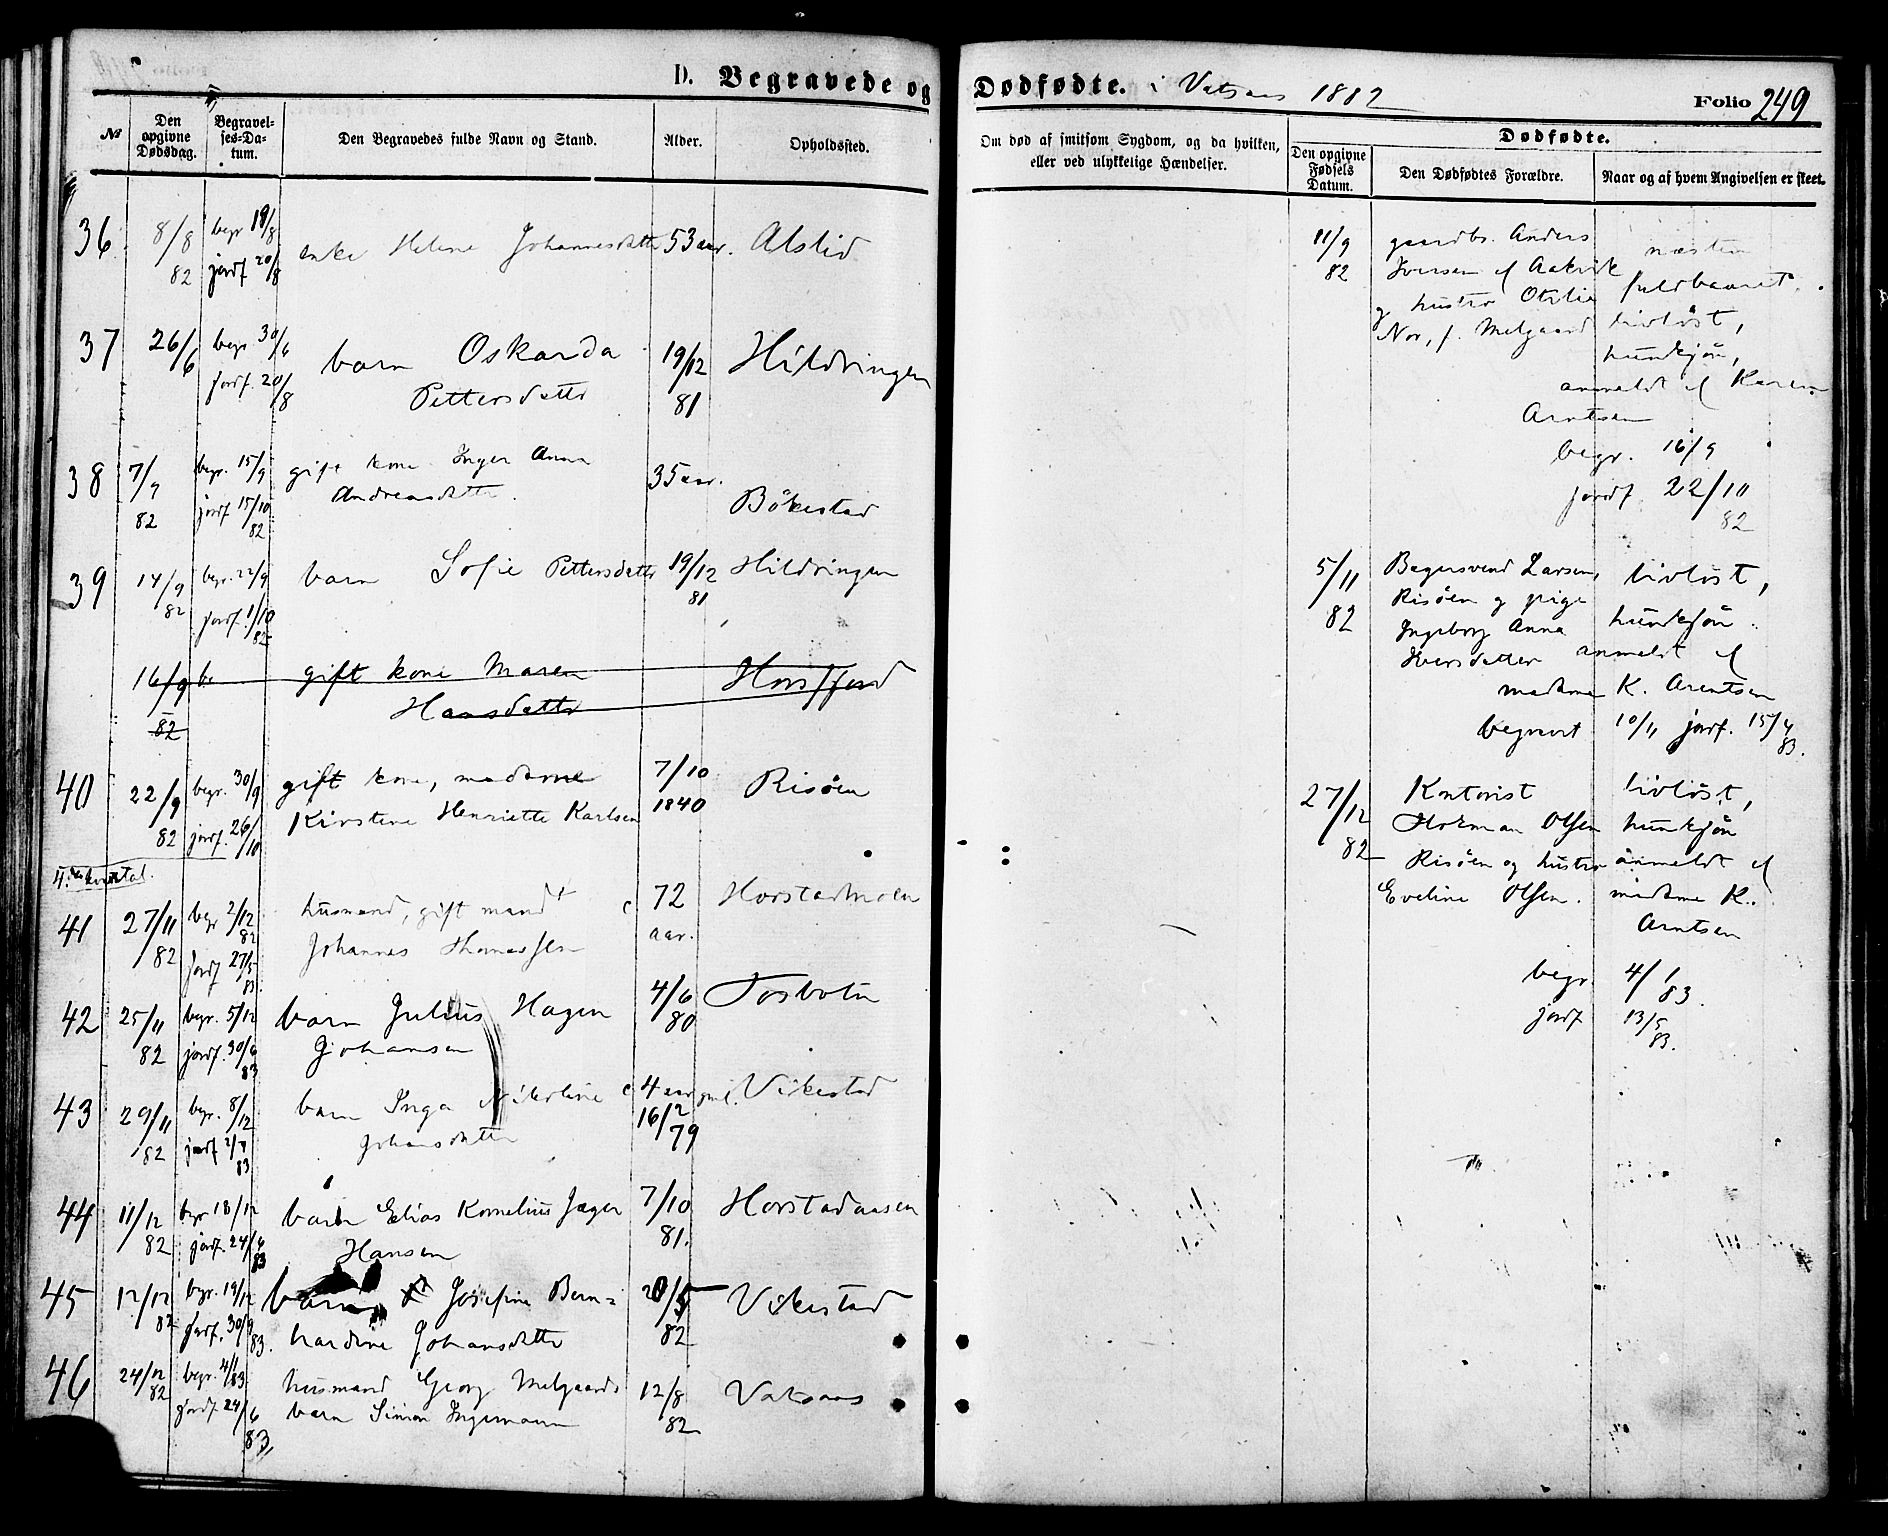 D. Begravede og Dødfødte. i Vatsaas 1882
Folio 249
№
Den opgivne Dødsdag.
Begravelses-Datum.
Den Begravedes fulde Navn og Stand.
Alder.
Opholdssted.
Om død af smitsom Sygdom, og da hvilken, eller ved ulykkelige Hændelser.
Dødfødte.
Den opgivne Fødsels Datum.
Den Dødfødtes Forældre.
Naar og af hvem Angivelsen er skeet.
36 8/8 82 begr 19/8 jordf 20/8 enke Helene Johannesdatter 53 aar. Alstid
37 26/6 begr. 30/6 jordf. 20/8 barn Oskarda
Pettersdatter 19/12 81 Hildringen
38 7/9 82 begr. 15/9 jordf 15/10 82 gift kone Inger Anna
Andreasdatter. 35 aar. Bökestad
39 14/9 82 begr. 22/9 jordf. 1/10 82 barn Sofie Pettersdatter 19/12 81 Hildringen
16/9 82 be gift kone Maren
Hansdatter Horsfjord
40 22/9 82 begr. 30/9 jordf. 26/10 gift kone, madame
Kirstine Henriette Karlsen 7/10 1840 Risöen
41 27/11 82 begr 2/12 82 jordf 27/5 83. husmand, gift mand
Johannes Thomassen c 72 aar. Horstadmoen
42 25/11 82 begr. 5/12 jordf. 30/6 83 barn Julius Hagen
Johansen 4/6 80 Tosbotn
43 29/11 82 begr. 8/12 jordf 2/7 83 barn Inga Nikoline
Johansdatter c 4 aar gml. 16/2 79 Vikestad
44 11/12 82 begr 18/12 jordf. 24/6 83 barn Elias Kornelius Jæger
Hansen 7/10 81. Horstadaasen
45 12/12 82 begr. 19/12 jordf. 30/9 83. barn Josefine Bern=
hardine Johansdatter 20/5 82 Vikestad
46 24/12 82 begr. 4/1 83 jordf 24/6 83, husmand Georg Melgaards
barn Simon Ingemann 12/8 82 Vatsaas
11/9 82 gaardbr. Anders
Iversen af Aakvik
og hustru Otelie
Nor, f. Melgaard
næsten
fuldbaaret.
livlöst,
hunkjön,
anmeldt af Karen
Arntsen
begr. 16/9
jordf 22/10 82
5/11 82 Bagersvend Larsen,
Risöen og pige
Ingeborg Anna
Iversdatter
livlöst,
hunkjön.
anmeldt af
madame K. Arentsen
begravet 10/11 jordf. 15/4 83.
27/12 82 Kontorist
Herman Olsen
Risöen og hustru
Eveline Olsen.
livlöst,
hunkjön
anmeldt af
madame K.
Arntsen
begr 4/1 83.
jordf 13/5 83.